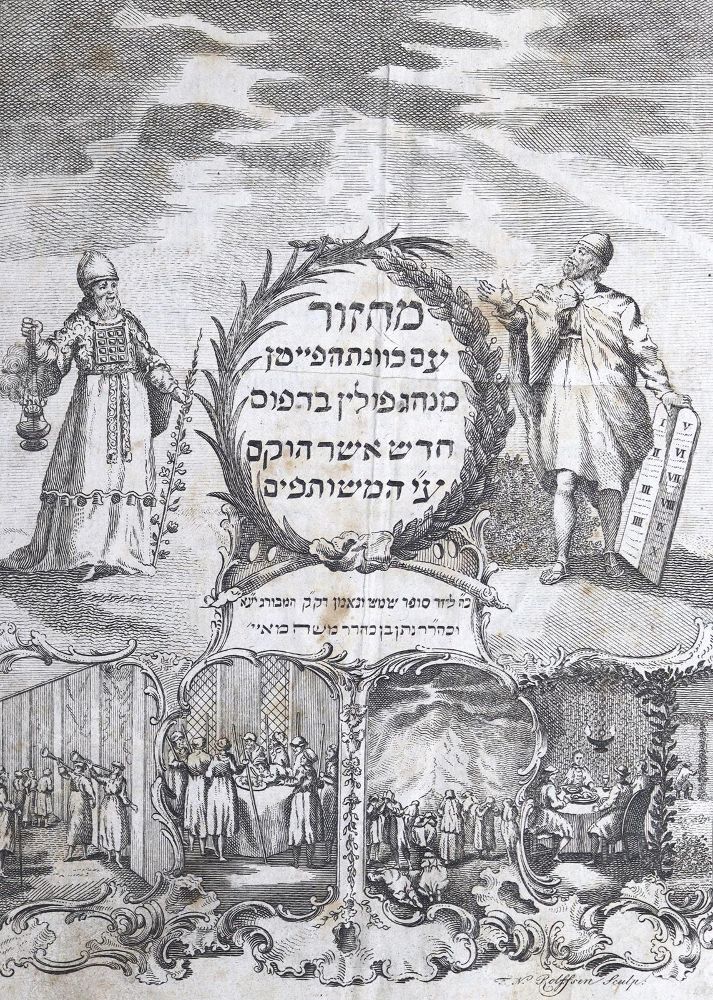 מחזור
עם כוונת הפייטן
מנהג פולין בדפוס
חדש אשר הוקם
ע״י המשותפים
כה ליזר סופר שמש ונאמן דק״ק המבורג יע״א
וכה״רר נתן בן כהדר משה מאיי׳
I
II
III
IIII
V
VI
VII
VIII
IX
X
Rolffsen Sculp.